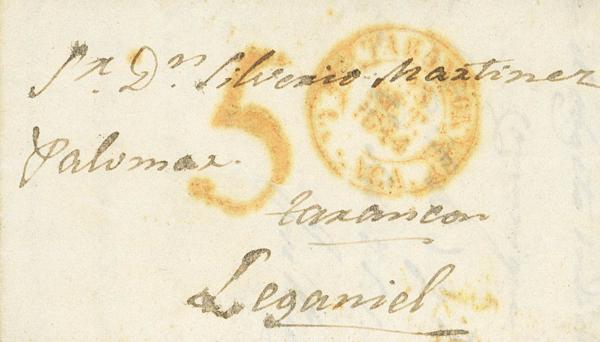 Sr. Dn Silverio Martinez
Palomar.
5
tarancon
Leganiel